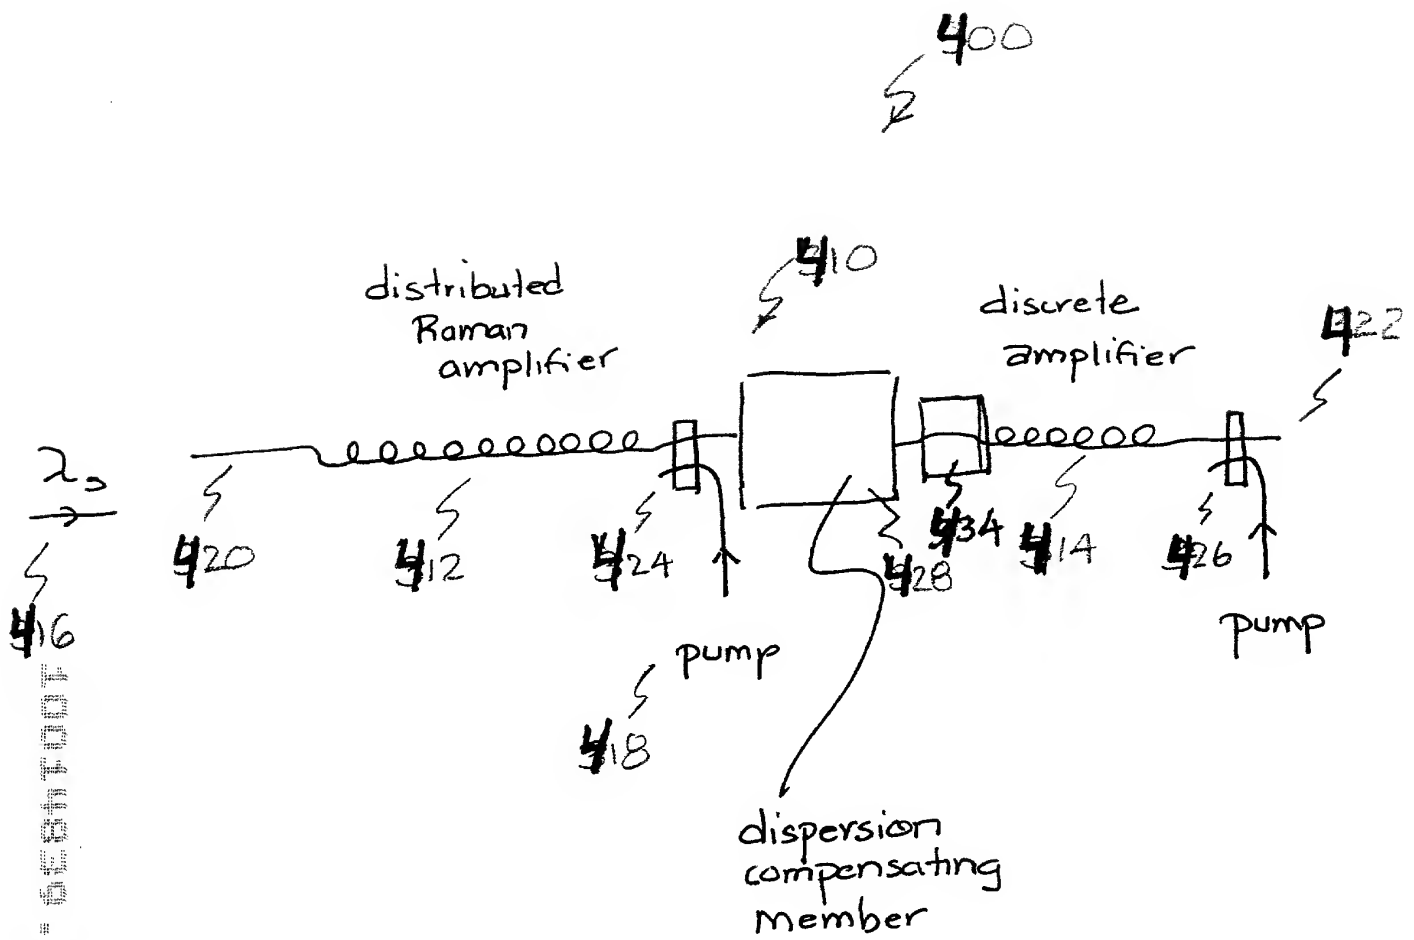 400
410
distributed
Raman
amplifier
discrete
amplifier
422
λs
420
412
424
428
434
414
426
416
pump
pump
418
dispersion
compensating
member
10014839 -